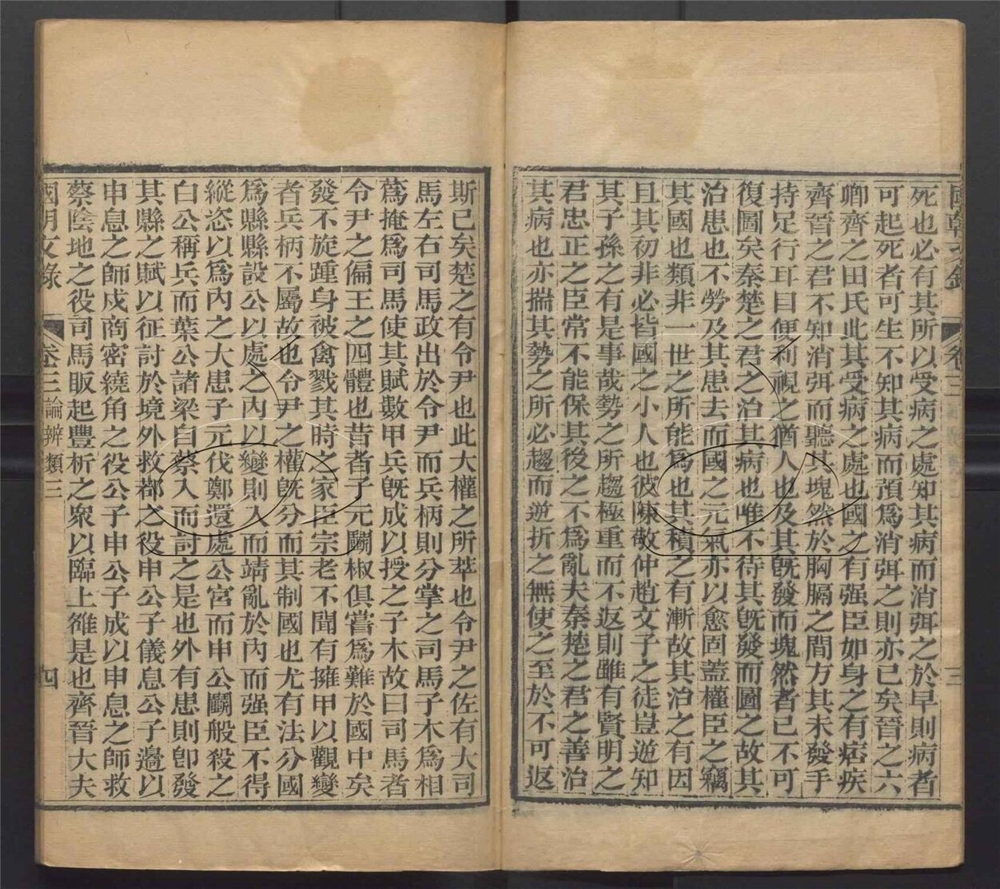 國朝文錄 卷三 三
死也必有其所以受病之處知其病而消弭之於早則病者
可起死者可生不知其病而預爲消弭之則亦已矣晉之六
卿齊之田氏此其受病之處也國之有强臣如身之有痞疾
齊晉之君不知消弭而聽其塊然於胸膈之間方其未發手
持足行耳目便利視之猶人也及其旣發而塊然者已不可
復圖矣秦楚之君之治其病也唯不待其旣發而圖之故其
治患也不勞及其患去而國之元氣亦以愈固蓋權臣之竊
其國也類非一世之所能爲也其積之有漸故其治之有因
且其初非必皆國之小人也彼陳敬仲趙文子之徒豈逆知
其子孫之有是事哉勢之所趨極重而不返則雖有賢明之
君忠正之臣常不能保其後之不爲亂夫秦楚之君之善治
其病也亦揣其勢之所必趨而逆折之無使之至於不可返
斯已矣楚之有令尹也此大權之所萃也令尹之佐有大司
馬左右司馬政出於令尹而兵柄則分掌之司馬子木爲相
蒍掩爲司馬使其賦數甲兵旣成以授之子木故曰司馬者
令尹之偏王之四體也昔者子元鬬椒俱嘗爲難於國中矣
發不旋踵身被禽戮其時之家臣宗老不聞有擁甲以觀變
者兵柄不屬故也令尹之權旣分而其制國也尤有法分國
爲縣縣設公以處之內以變則入而靖亂於內而强臣不得
縱恣以爲內之大患子元伐鄭還處公宮而申公鬬般殺之
白公稱兵而葉公諸梁自蔡入而討之是也外有患則卽發
其縣之賦以征討於境外救鄀之役申公子儀息公子邊以
申息之師戍商密繞角之役公子申公子成以申息之師救
蔡陰地之役司馬販起豐析之衆以臨上雒是也齊晉大夫
國朝文錄 卷三論辨類三 四